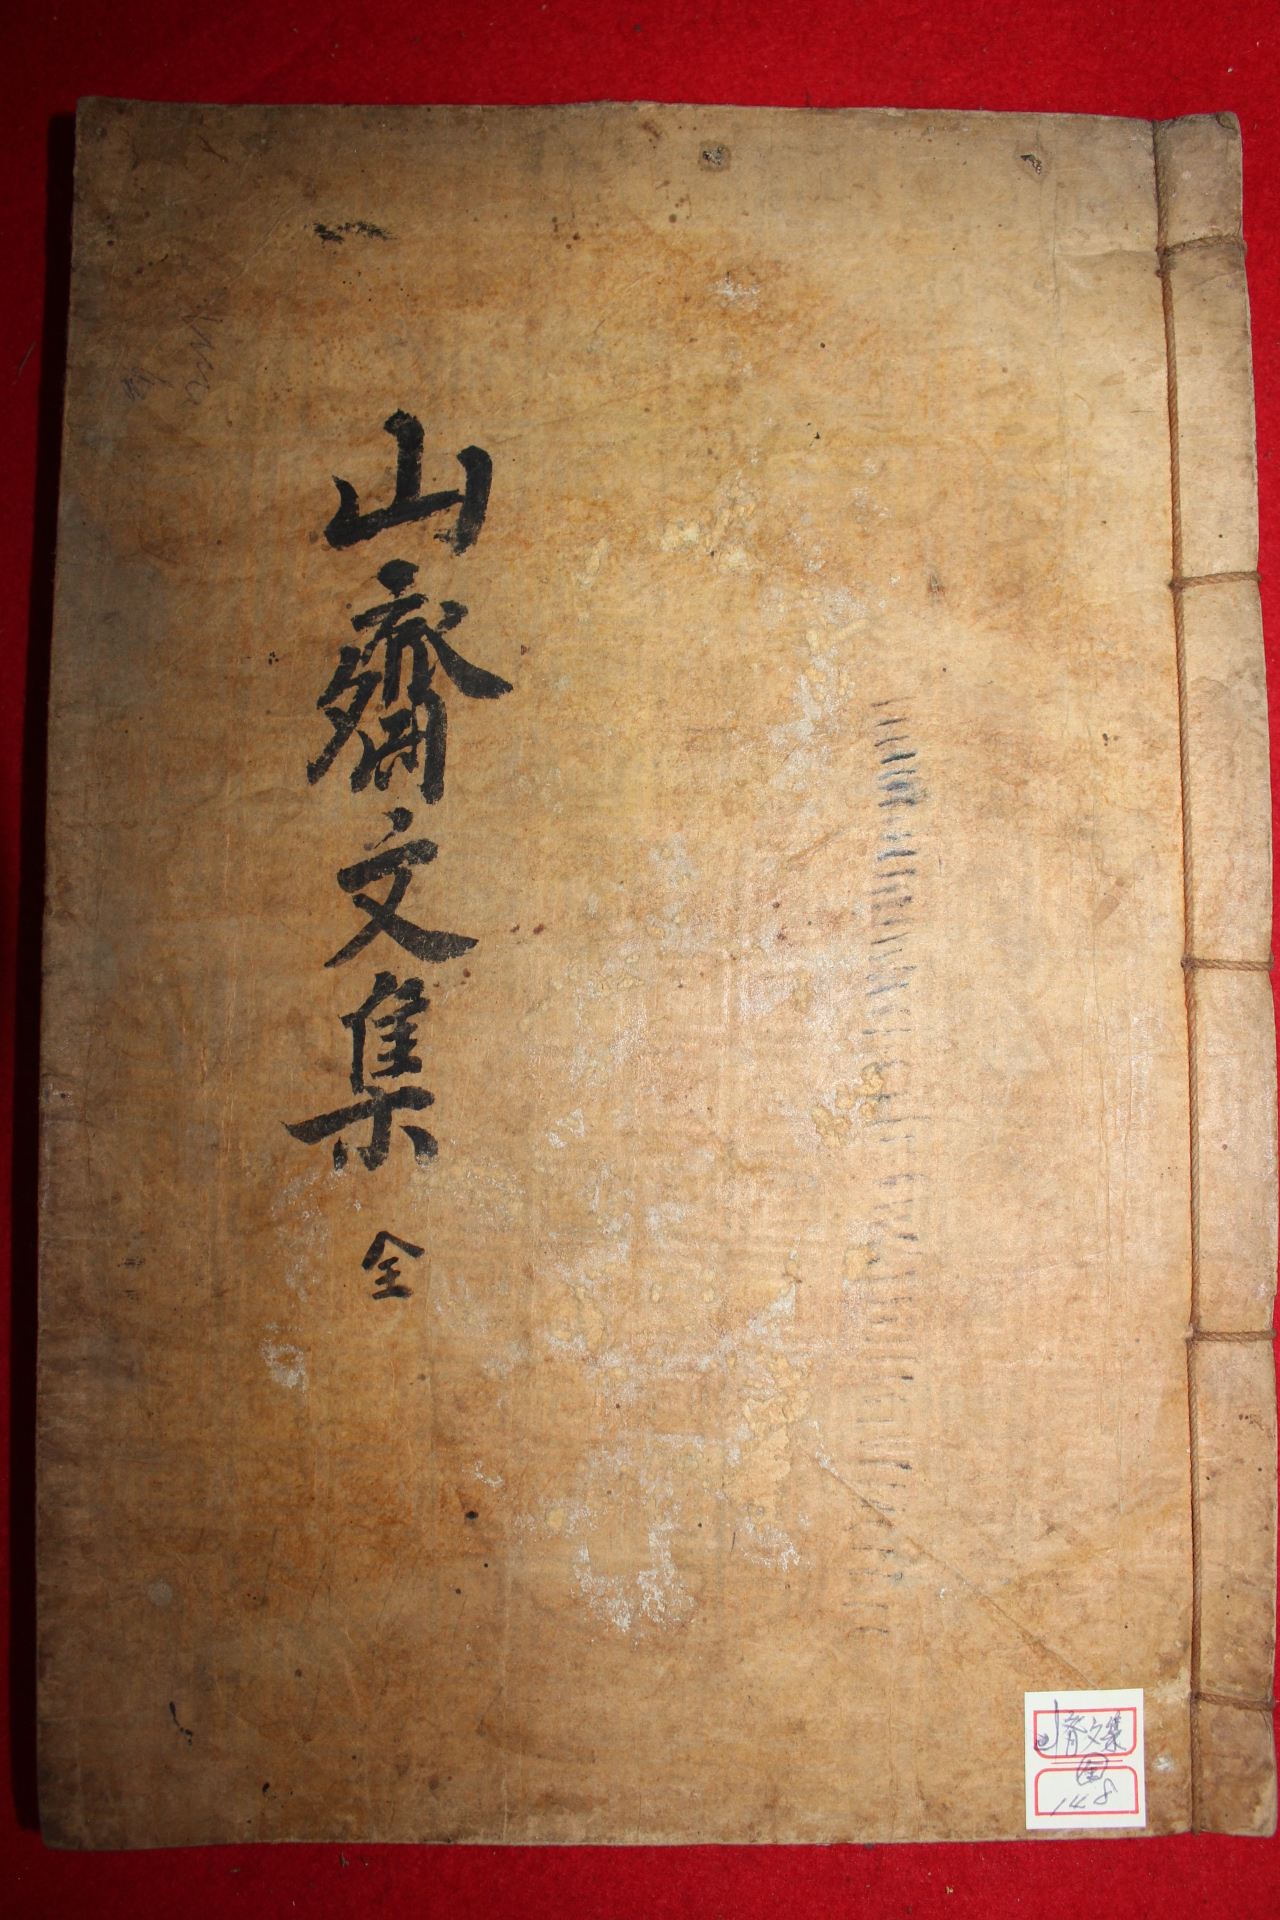 山齋文集 全
山齊文集
全
148